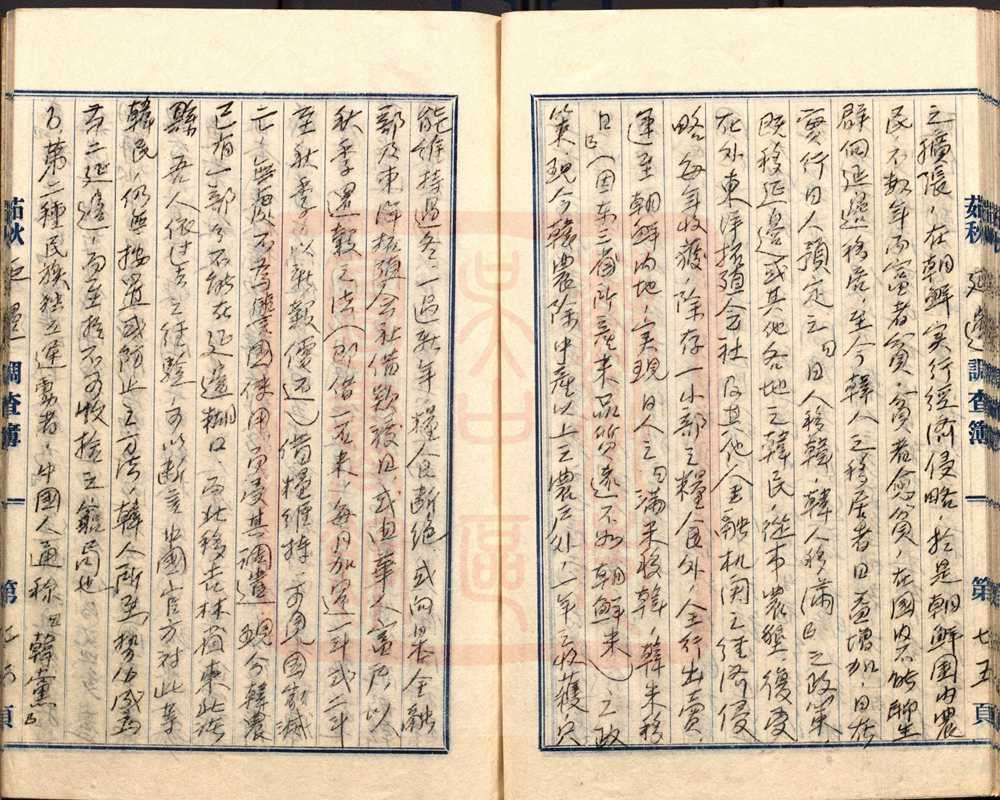 茹秋 延邊 調查簿 第七五頁
之擴張，在朝鮮实行經濟侵略，於是朝鮮国内農
民不数年而富者贫，贫者愈贫，在國内不能聊生
群向延邊移居，至今韓人之移居者日益增加，日在
實行日人預定之「日人移韓，韓人移滿」之政策
既移延邊或其他各地之韓民，從事農墾復受
在外東洋拓殖会社及其他金融机関之經済侵
略，每年收獲除存一小部之糧食外，全行出賣
運至朝鮮内地，实現日人之「满米移韓，韓米移
日」（因东三省所產米品質遠不如朝鮮米）之政
策，现今韓農除中產以上之農户外，一年之收獲只
能維持過冬，一過新年，糧食断絶，或向某金融
部及東洋拓殖会社借款種日或迫華人富户以
秋季還穀之法（即借一石米，每月加還一斗或二斗
至秋季以新穀償还）借糧維持，可見国家滅
亡，無處不為亡國使用，而受其调遣，现今韓農
已有一部分不能在延邊糊口，而北移吉林省東北诸
縣，吾人依过去之往鑒，可以断言中國官方对此等
韓民，仍無撫導或防止之方法，韓人所至，势必成為
第二延邊，而至於不可收拾之窮局也
乃、第二種民族独立運動者，中國人通称曰「韓黨」
茹秋 延邊 調查簿 第 頁